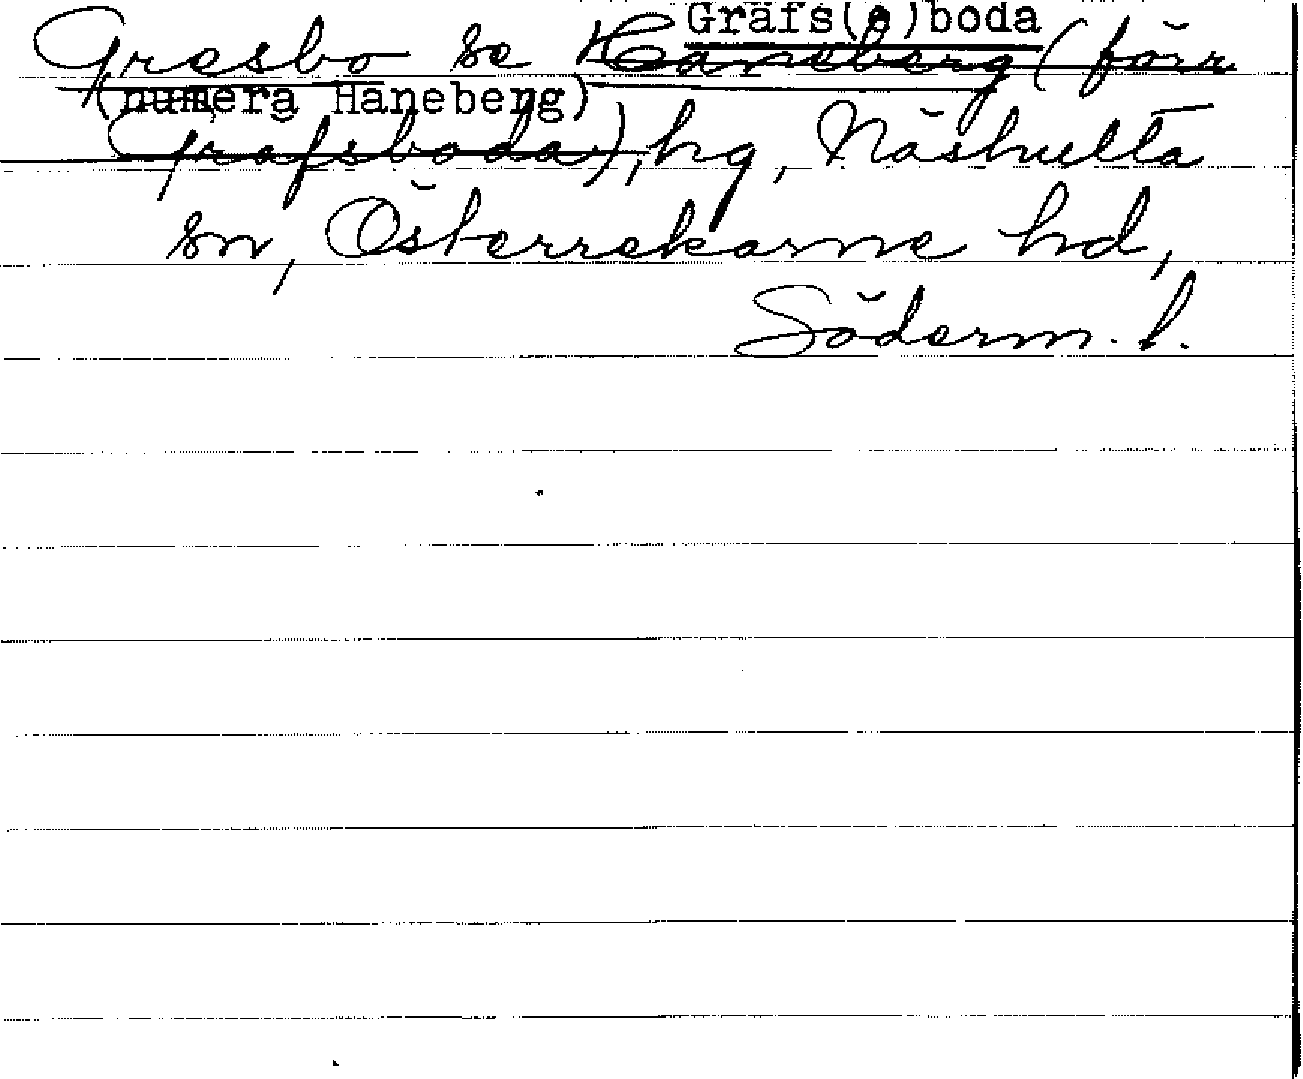 Gräfs(a)boda
Gresbo se Häneberg (förr
(numera Häneberg)
Gräfsboda), hg, Näshulta
sn, Österrekarne hd,
Söderm. l.